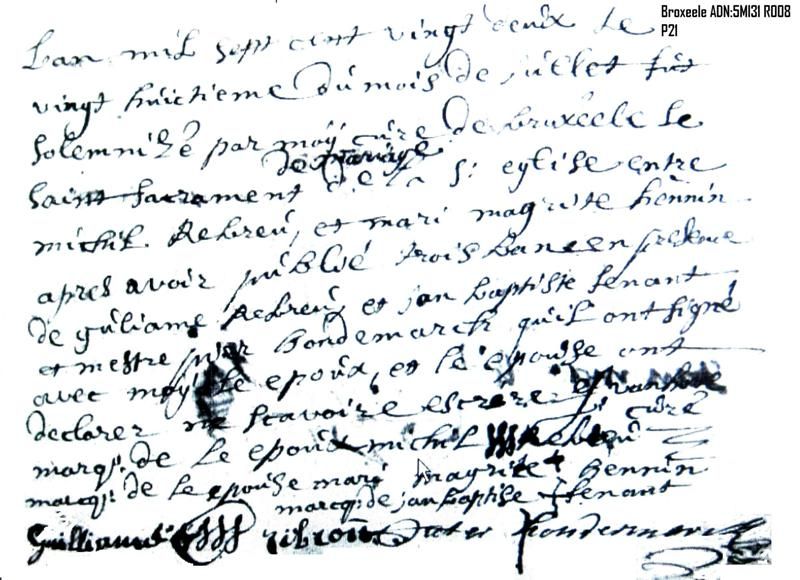 Broxeele ADN:5MI31 R008
P21
Lan mil sept cent vingt deux le
vingt huictieme du mois de juillet fut
solemnizé par moÿ cure de bruxeele le
de mariage
saint sacrament de la St eglise entre
michil Rebreu, et mari magrite hennin
apres avoir publié trois bans en presence
de guliame Rebreu, et jan baptiste tenant
et mestre pier hondemarck quil ont signé
avec moÿ le epoux, et le epouse ont
declarer ne scavoire escrere
curé
marq: de le epoux michil Rebreu
marcq: de le epouse mari magrite hennin
marcq: de jan baptise tenant
Guilliaume ribrou pieter hondermarck